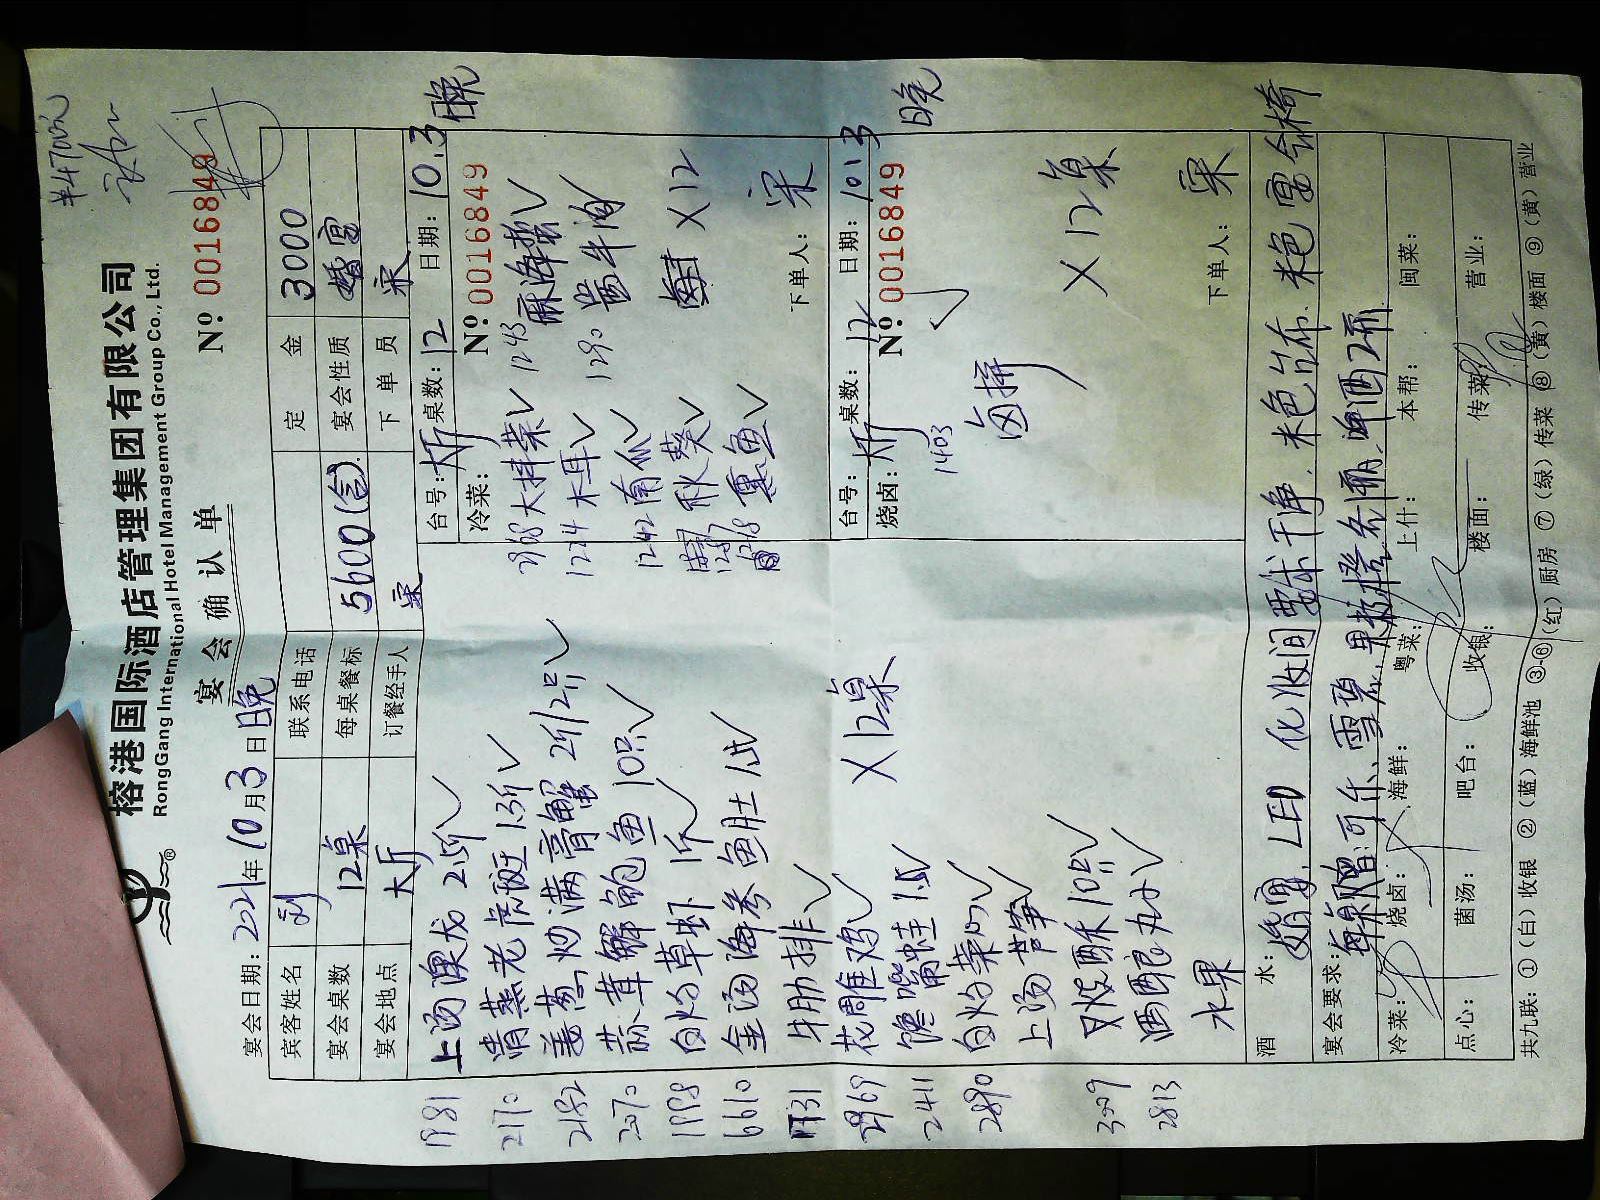 ¥4700元
榕港国际酒店管理集团有限公司
RongGang International Hotel Management Group Co., Ltd.
宴会确认单
Nº 0016849
宴会日期: 2021年10月3日晚
宾客姓名 刘 联系电话 定金 3000
宴会桌数 12桌 每桌餐标 5600(含) 宴会性质 婚宴
宴会地点 大厅 订餐经手人 宋 下单员 宋
台号: 大厅 桌数: 12 日期: 10.3 晚
冷菜: Nº 0016849
1981 上汤澳龙 2.5斤
2170 清蒸老虎斑 1.3斤
2182 姜葱炒满膏蟹 2斤/2只
2070 蒜茸鲜鲍鱼 10只
1998 白灼草虾 1斤
6610 金汤海参鱼肚 1份
1731 牛肋排
2969 花雕鸡
2411 馋嘴蛙 1份
2890 白灼菜心
上汤芦笋
3009 榴莲酥 10只
2813 酒酿丸子
水果
X12桌
2968 大拌菜 1243 麻海蜇
1224 木耳 1290 酱牛肉
1242 南瓜
秋葵
1218 熏鱼
X12
下单人: 宋
台号: 大厅 桌数: 12 日期: 10.3 晚
烧卤: Nº 0016849
1403
卤拼
X12桌
下单人: 宋
酒水: 婚宴, LED 化妆间要求干净, 米色台布, 米色宴会椅
宴会要求: 每桌赠: 可乐、雪碧、果粒橙各1瓶, 啤酒2瓶
冷菜: 烧卤: 海鲜: 粤菜: 上什: 本帮: 闽菜:
点心: 菌汤: 吧台: 收银: 楼面: 传菜: 营业:
共九联: ①(白)收银 ②(蓝)海鲜池 ③-⑥(红)厨房 ⑦(绿)传菜 ⑧(黄)楼面 ⑨(黄)营业